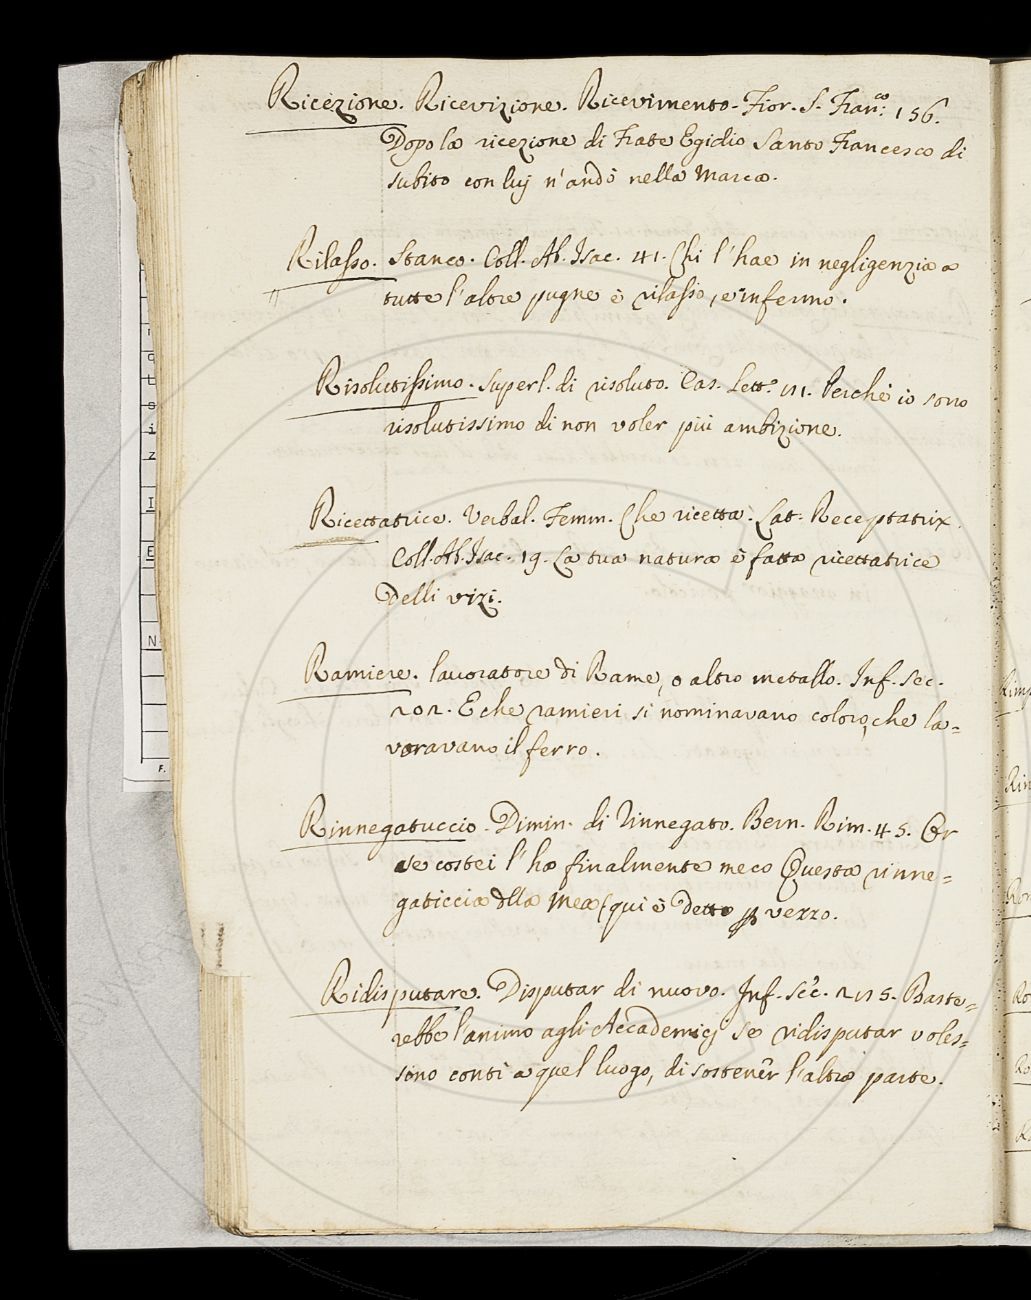 Ricezione. Ricevizione. Ricevimento. Fior. S. Fran.co 156.
Dopo la ricezione di Frate Egidio Santo Francesco di
subito con luj n'andò nella Marca.
Rilasso. Stanco. Coll. Ab. Isac. 41. Chi l'hae in negligenzia a
tutte l'altre pugne è rilasso, e infermo.
Risolutissimo. Superl. di risoluto. Cas. Lett. Perchè io sono
risolutissimo di non voler più ambizione.
Ricettatrice. Verbal. Femm. Che ricetta. Lat. Receptatrix.
Coll. Ab. Isac. 19. La tua natura è fatta ricettatrice
Delli vizi.
Ramiere. lavoratore di Rame, o altro metallo. Inf. Sec.
202. E che ramieri si nominavano coloro, che la=
voravano il ferro.
Rinnegatuccio. Dimin. di Rinnegato. Bern. Rim. 45. Or
se costei l'ha finalmente meco Questa rinne=
gaticcia dlla Mea (qui è Detto p vezzo.
Ridisputare. Disputar di nuovo. Inf. Sec. 215. Baste=
rebbe l'animo agli Accademicj se ridisputar voles=
sino conti a quel luogo, di sostener l'altra parte.